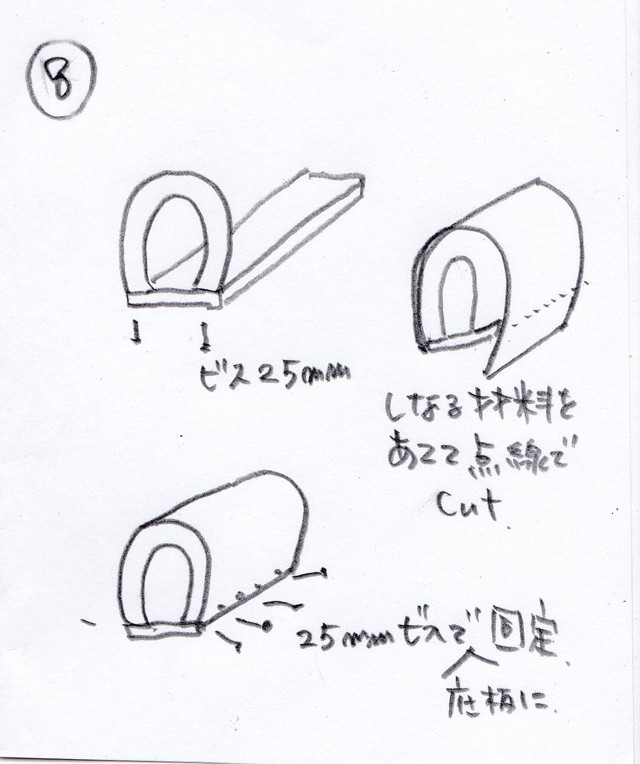 8
ビス25mm
しなる材料を
あてて点線で
Cut.
25mmビスで固定.
底板に.